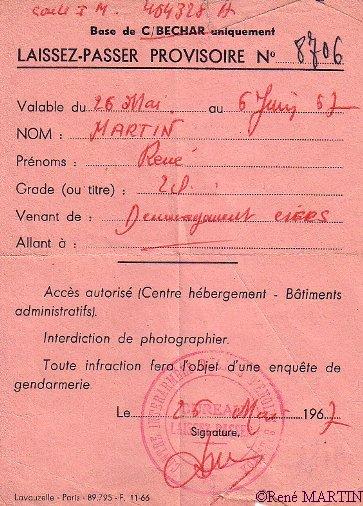 404328 A
Base de C/BECHAR uniquement
LAISSEZ-PASSER PROVISOIRE N° 8706
Valable du 26 Mai au 6 Juin 67
NOM : MARTIN
Prénoms : René
Grade (ou titre) :
Venant de :
Allant à :
Accès autorisé (Centre hébergement - Bâtiments
administratifs).
Interdiction de photographier.
Toute infraction fera l'objet d'une enquête de
gendarmerie.
Le 26 Mai 1967
Signature,
Lavauzelle - Paris - 89.795 - F. 11-66
©René MARTIN